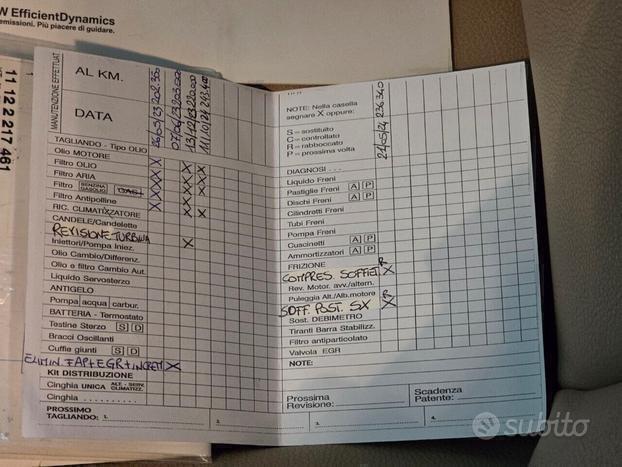 W EfficientDynamics
emissioni. Più piacere di guidare.
11 12 2 217 461
MANUTENZIONE EFFETTUAT.
AL KM.
DATA
26/05/23 202.350
07/06/23 203.000
13/12/23 220.000
11/10/24 243.400
TAGLIANDO - Tipo OLIO
Olio MOTORE X
Filtro OLIO X X X X
Filtro ARIA X X X
Filtro BENZINA GASOLIO GAS X X X
Filtro Antipolline X X X
RIC. CLIMATIZZATORE
CANDELE/Candelette
REVISIONE TURBINA X
Iniettori/Pompa Iniez.
Olio Cambio/Differenz.
Olio e filtro Cambio Aut.
Liquido Servosterzo
ANTIGELO
Pompa acqua carbur.
BATTERIA - Termostato
Testine Sterzo S D
Bracci Oscillanti
Cuffie giunti S D
ELIMIN. FAP+EGR+ X
Kit DISTRIBUZIONE
Cinghia UNICA ALT. - SERV. CLIMATIZZ.
Cinghia . . . . . . . . . .
PROSSIMO
TAGLIANDO: 1. 2.
NOTE: Nella casella
segnare X oppure:
S = sostituito
C = controllato
R = rabboccato
P = prossima volta
21/05/24 236.340
DIAGNOSI . . .
Liquido Freni
Pastiglie Freni A P
Dischi Freni A P
Cilindretti Freni
Tubi Freni
Pompa Freni
Cuscinetti A P
Ammortizzatori A P
FRIZIONE
COMPRES. SOFFIET. R X
Rev. Motor. avv./altern.
Puleggia Alt./Alb.motore
SOFF. POST. SX R X
Sost. DEBIMETRO
Tiranti Barra Stabilizz.
Filtro antiparticolato
Valvola EGR
NOTE:
Prossima
Revisione:
Scadenza
Patente:
3. 4.
subito